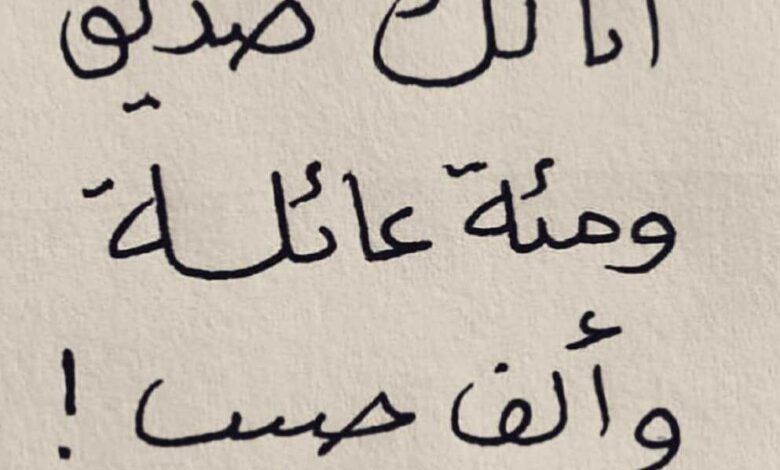 انا لك صديق
ومئة عائلة
وألف حبيب !